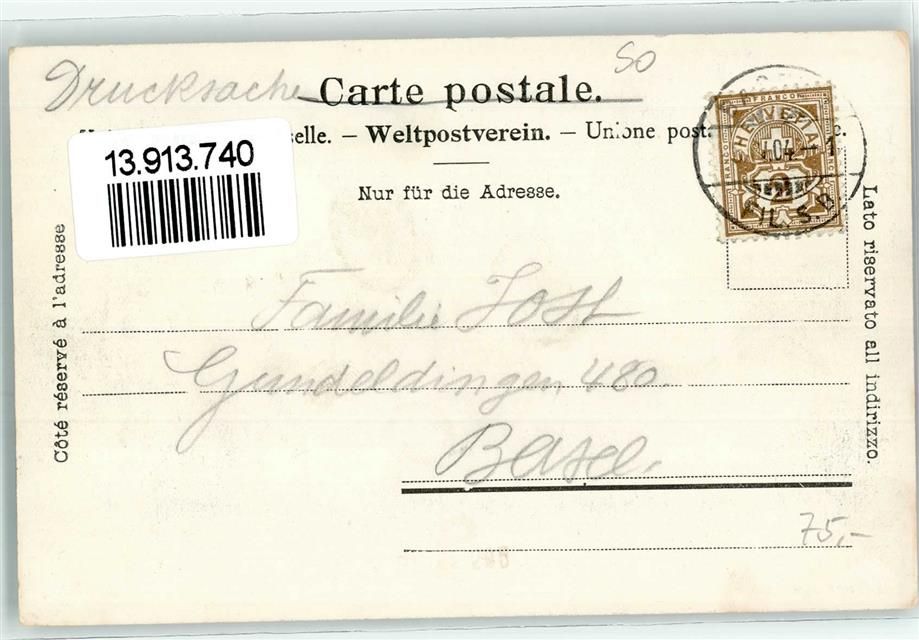 Drucksache
50
Carte postale.
selle. – Weltpostverein. – Unione post
Nur für die Adresse.
13.913.740
FRANCO
HELVETIA
2
Côté réservé à l'adresse
Lato riservato all indirizzo.
Familie Jost
Gundeldingen 480.
Basel.
75,-